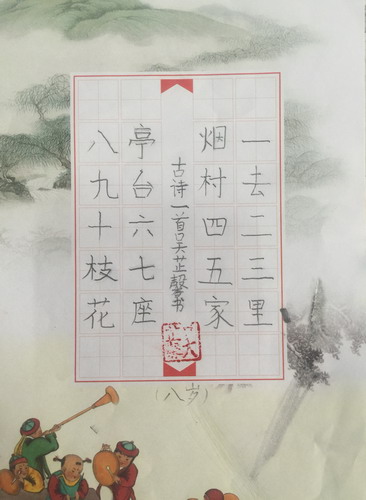 一去二三里
烟村四五家
古诗一首吴芷馨书
亭台六七座
八九十枝花
(八岁)